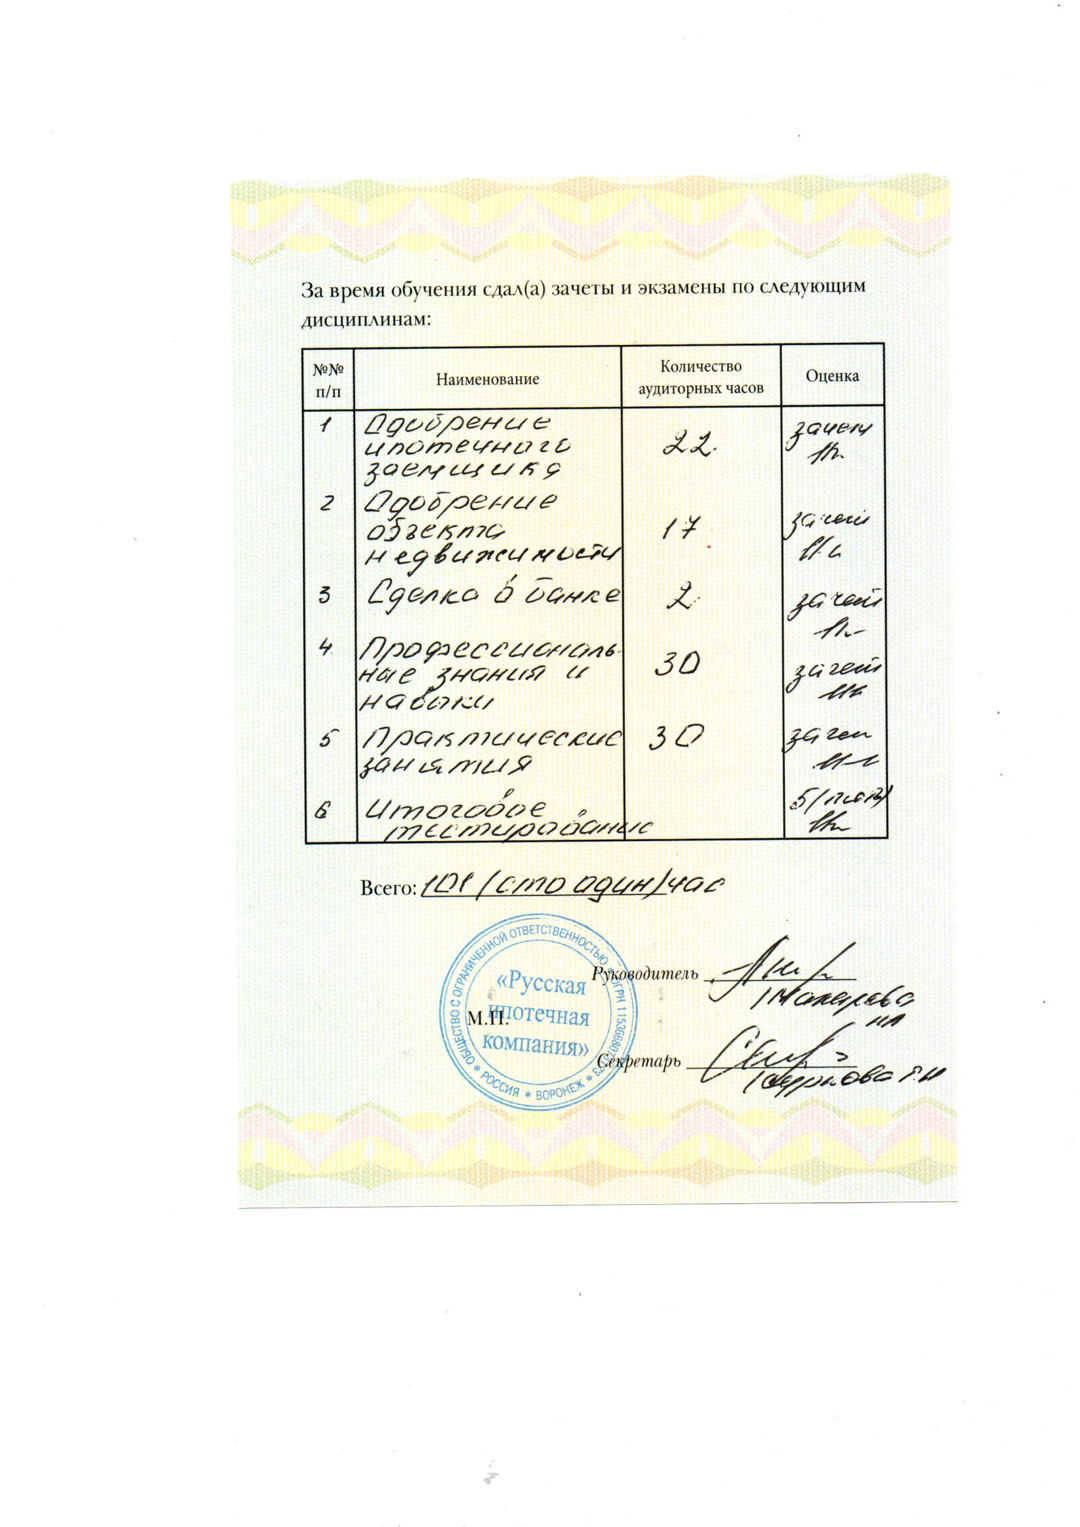 За время обучения сдал(а) зачеты и экзамены по следующим
дисциплинам:
№№ п/п
Наименование
Количество аудиторных часов
Оценка
1 Одобрение 22. зачет
ипотечного
заемщика
2 Одобрение
объекта 17 зачет
недвижимости
3 Сделка в банке 2 зачет
4 Профессиональ-
ные знания и 30 зачет
навыки
5 Практические 30 зачет
занятия
6 Итоговое 5/пять/
тестирование
Всего: 101 /сто один/ час
ОБЩЕСТВО С ОГРАНИЧЕННОЙ ОТВЕТСТВЕННОСТЬЮ * ОГРН
* РОССИЯ * ВОРОНЕЖ *
«Русская
ипотечная
компания»
М.П.
Руководитель
Макарова
Секретарь